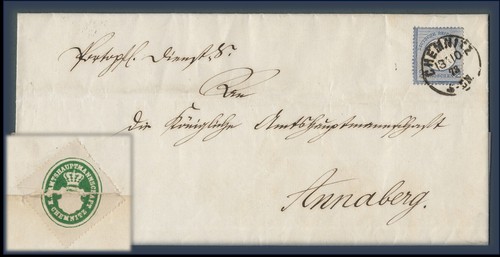 Portopfl. Dienst S.
An
die Königliche Amtshauptmannschaft
Annaberg.
CHEMNITZ
AMTSHAUPTMANNSCHAFT
CHEMNITZ